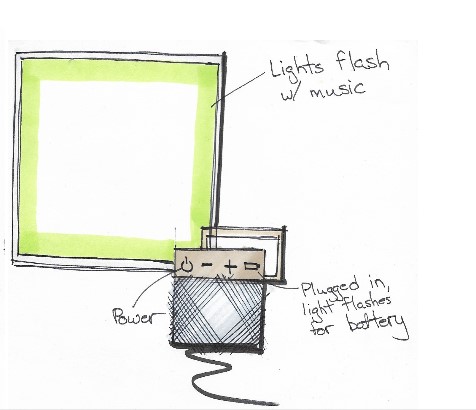 Lights flash
w/ music
Power
Plugged in,
light flashes
for battery